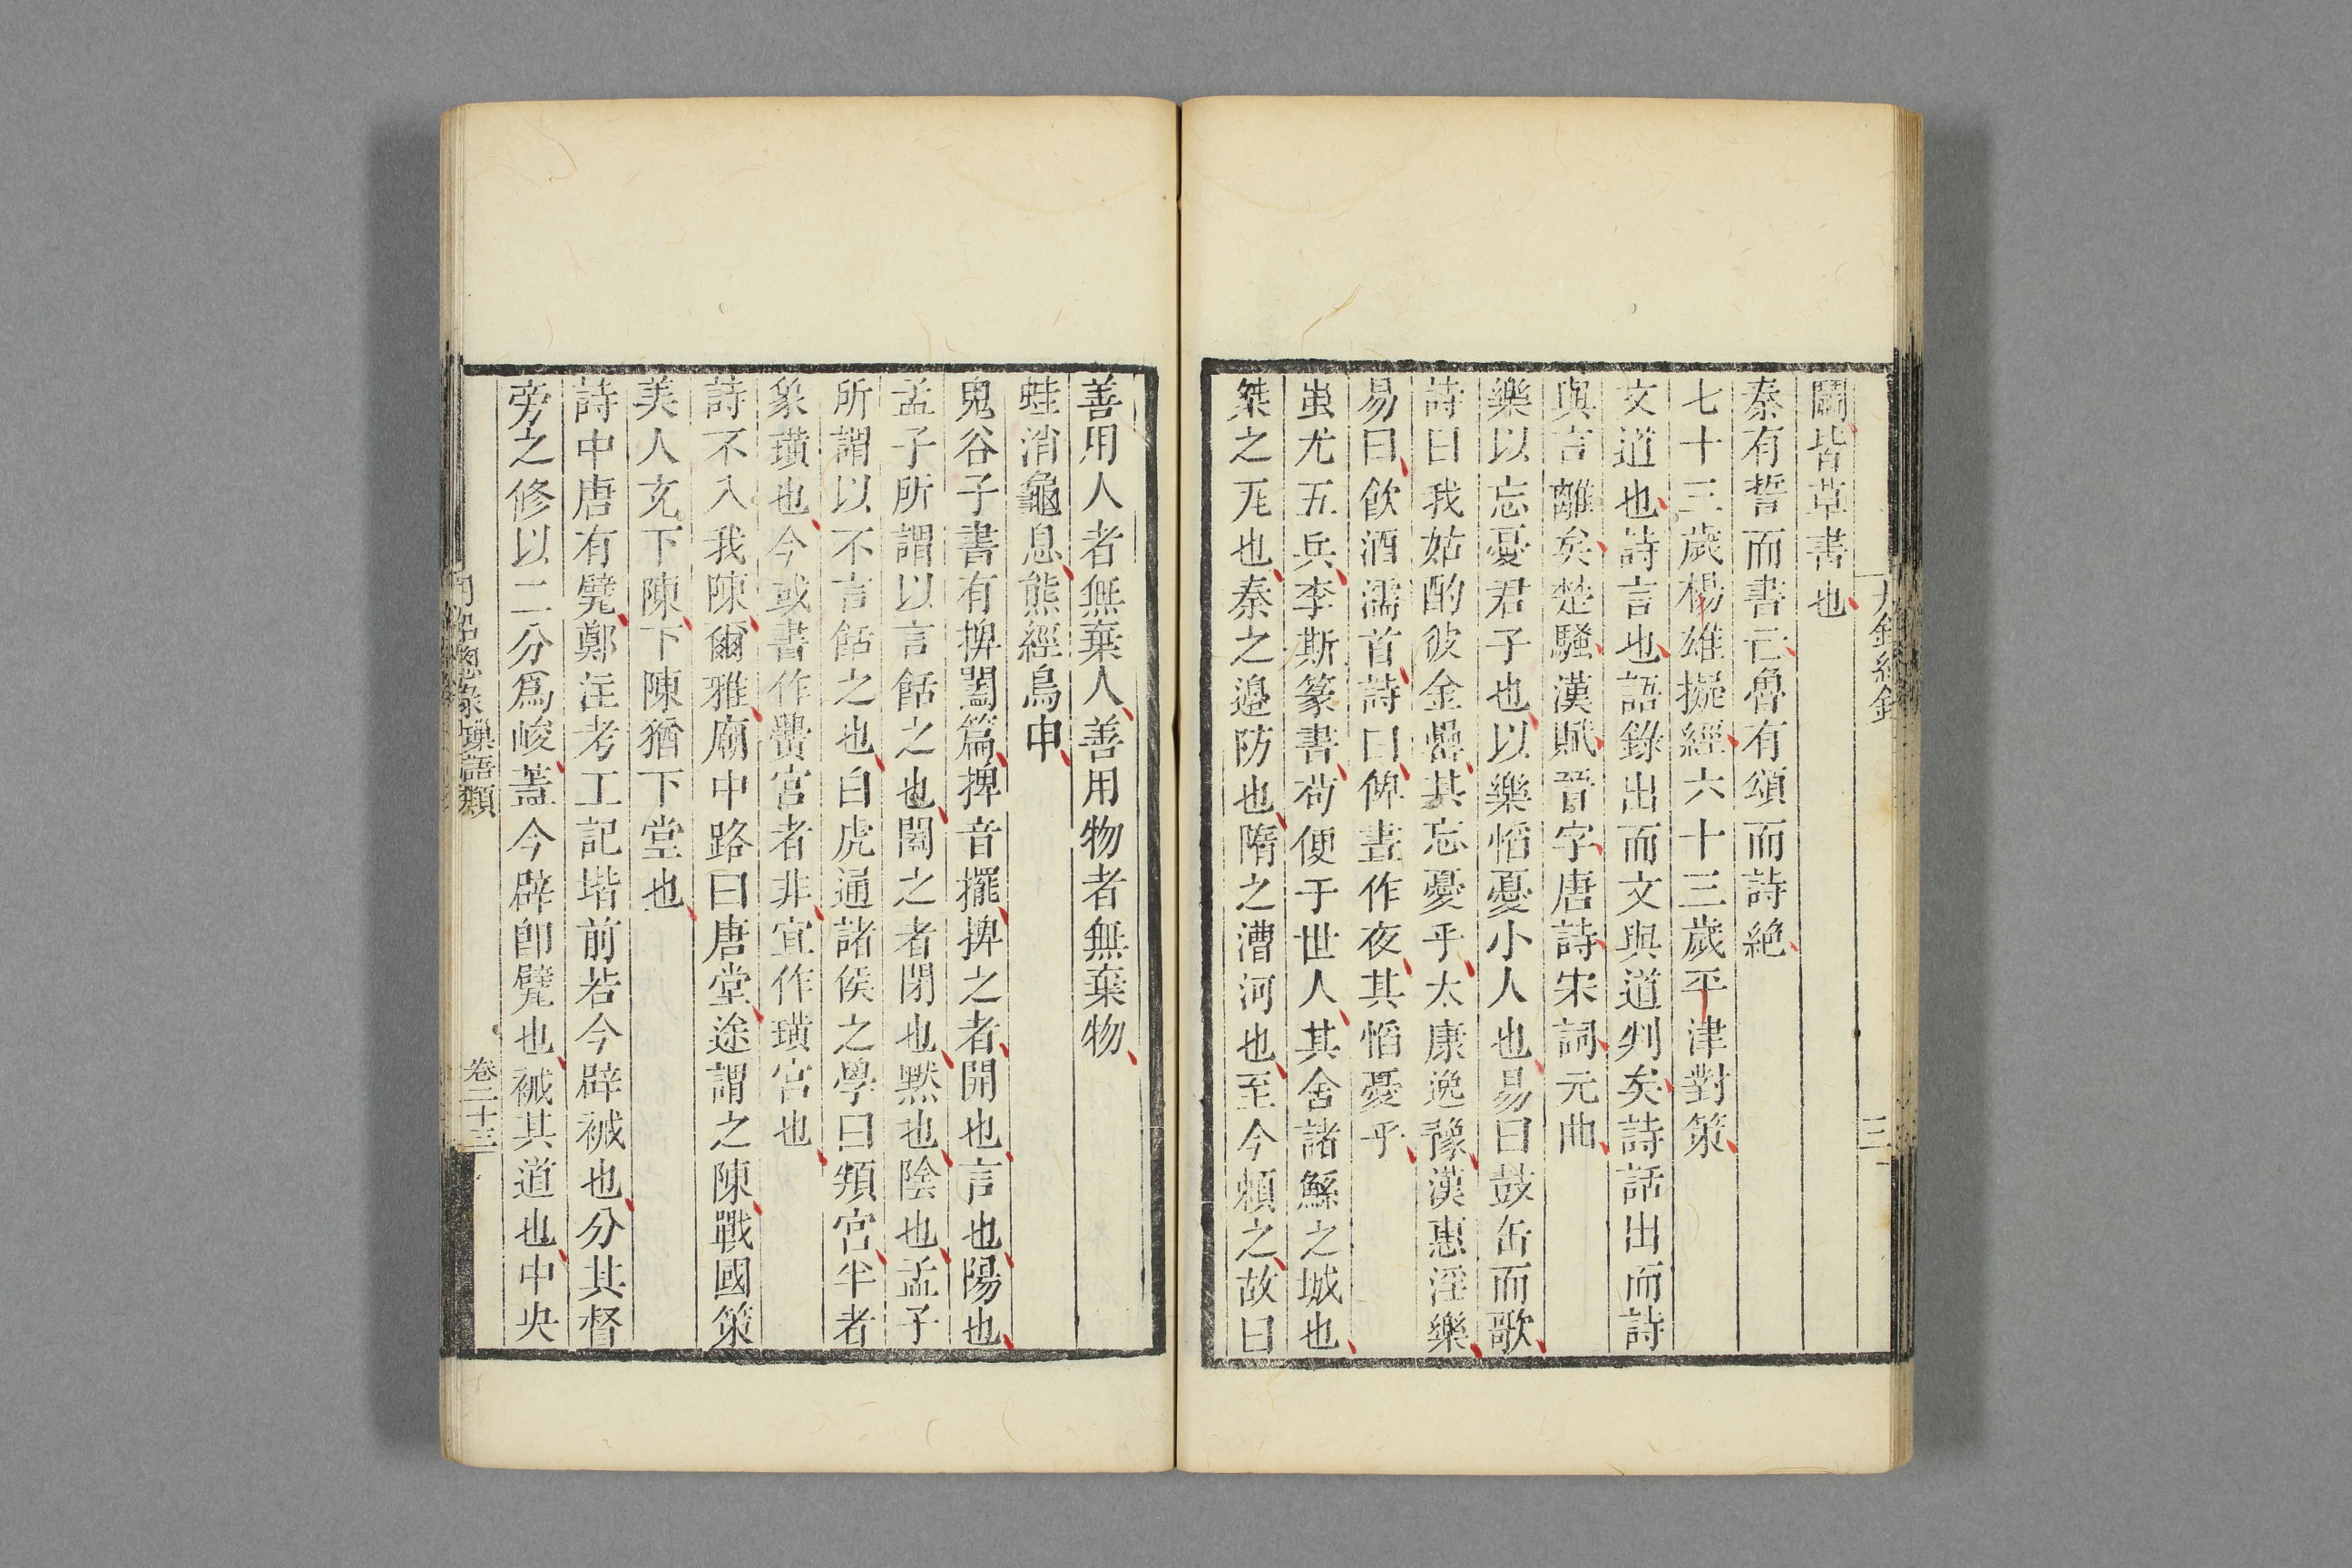 丹鉛總錄
三
鬭皆草書也
秦有誓而書亡魯有頌而詩絶
七十三歲楊雄擬經六十三歲平津對策
文道也詩言也語錄出而文與道判矣詩話出而詩
與言離矣楚騷漢賦晉字唐詩宋詞元曲
樂以忘憂君子也以樂慆憂小人也易曰鼓缶而歌
詩曰我姑酌彼金罍其忘憂乎太康逸豫漢惠淫樂
易曰飲酒濡首詩曰俾晝作夜其慆憂乎
蚩尤五兵李斯篆書苟便于世人其舍諸鯀之城也
桀之瓦也秦之邊防也隋之漕河也至今頼之故曰
善用人者無棄人善用物者無棄物
蛙消龜息熊經鳥申
鬼谷子書有捭闔篇捭音擺捭之者開也言也陽也
孟子所謂以言餂之也闔之者閉也黙也陰也孟子
所謂以不言餂之也白虎通諸侯之學曰頖宮半者
象璜也今或書作黌宮者非宜作璜宮也
詩不入我陳爾雅廟中路曰唐堂途謂之陳戰國策
美人充下陳下陳猶下堂也
詩中唐有甓鄭注考工記堦前若今辟裓也分其督
旁之修以二分爲峻蓋今辟卽甓也裓其道也中央
丹鉛總錄璅語類
卷二十三